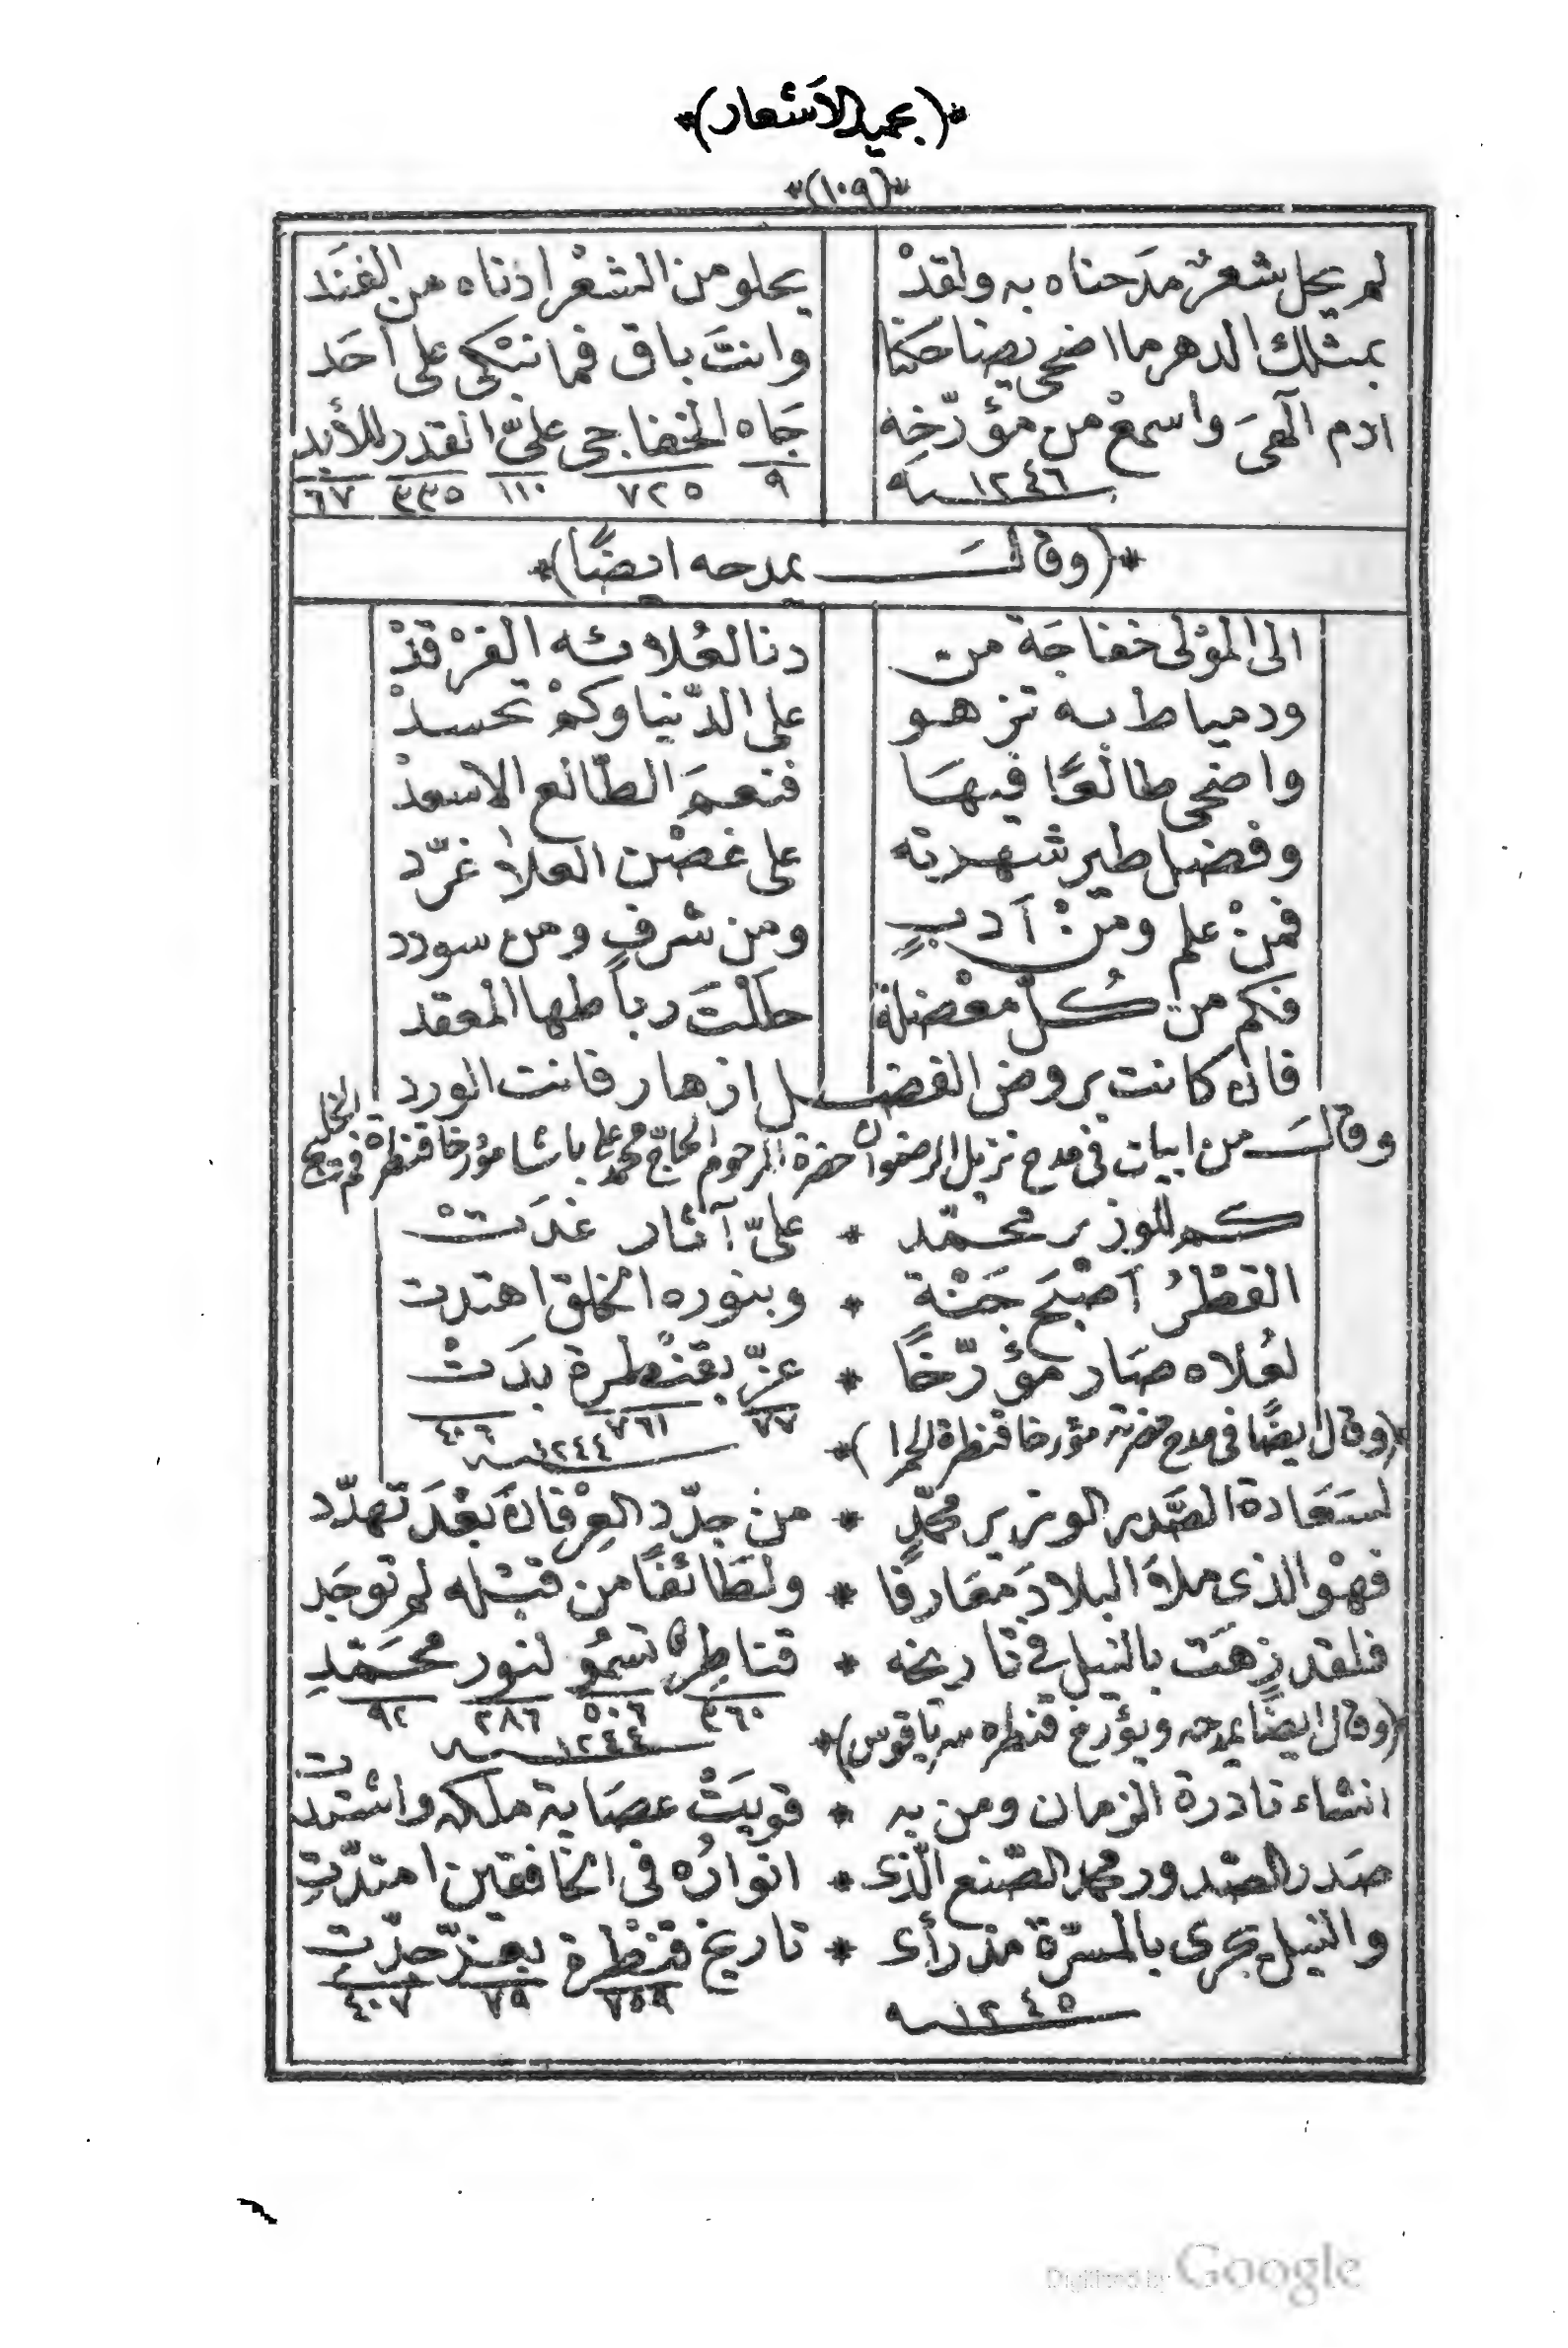 *(بحميد الاشعار)*
*(١٠٩)*
لم يحل شعرٌ مدَحناه به ولقدْ يحلو من الشعْر ادناه من الفنَد
بمثلك الدهر ما اضحى يضاحكنا وانتَ باق فما نبْكى على اَحَد
ادم الٓهىَ واسمعْ من مؤرّخِه جَاه الخفاجى علىّ القدر للأبد
١٢٤٦ ٩ ٧٢٥ ١١٠ ٣٣٥ ٦٧
*(وقالَ يمدحه ايضًا)*
الى المْولى خفاجَة من دنا لعُلائه الفرْقدْ
ودمياط به تزهو على الدّنيا وكمْ تحسدْ
واضحى طالعًا فيهَا فنعمَ الطّالع الاسعدْ
وفضل طير شهرته على غصْن العلا غرّد
فمنْ علم ومنْ اَدبٍ ومن شرفٍ ومن سودد
فكم من كُلّ معْضلة حلَلْتَ رباطها المْعقد
فان كانت بروض الفضل ازهار فانت الورد
وقالَ من ابيات فى مدح نزيل الرضوان حضرة المرحوم الحاجّ محمد على باشا مؤرخا قنطرة فم الخليج
كم للوزير محمّد * علىّ آثار غدَتْ
القطْرُ اَصْبَحَ جَنْةٍ * وبنوره الخلق اهتدت
لعُلاه صَار مؤرّخًا * عزّ بقنْطرة بدَتْ
٧٧ ٧٦١ ٤٠٦
١٢٤٤
*(وقال ايضًا فى مدح حضرته مؤرخا قنطرة الحمرا)*
لسَعَادة الصَّدر الوزير محمّدٍ * من جدّد العِرْفانَ بَعْدَ تهدّد
فهْو الذى ملاَ البلادَ معَارفًا * ولطَائفًا من قبْله لم توجَد
فلقد زهَتْ بالنيل فى تاريخه * قناطِرٌ تسمُو لنور محَمّدِ
٣٦٠ ٥٠٦ ٢٨٦ ٩٢
١٢٤٤
(وقال ايضًا يمدحه ويؤرخ قنطره سرياقوس)*
انشاء نادرة الزمان ومن به * قويَتْ عصَابة ملكه واشْتدت
صَدر الصّدور محمد الصّنع الّذى * انوارُه فى الخافقين امتدّتِ
والنيل يجرى بالمسرّة مذ رأى * تاريخ قنْطرة بعزّ حدّتِ
٧٥٩ ٧٩ ٤٠٧
١٢٤٥
Digitized by Google